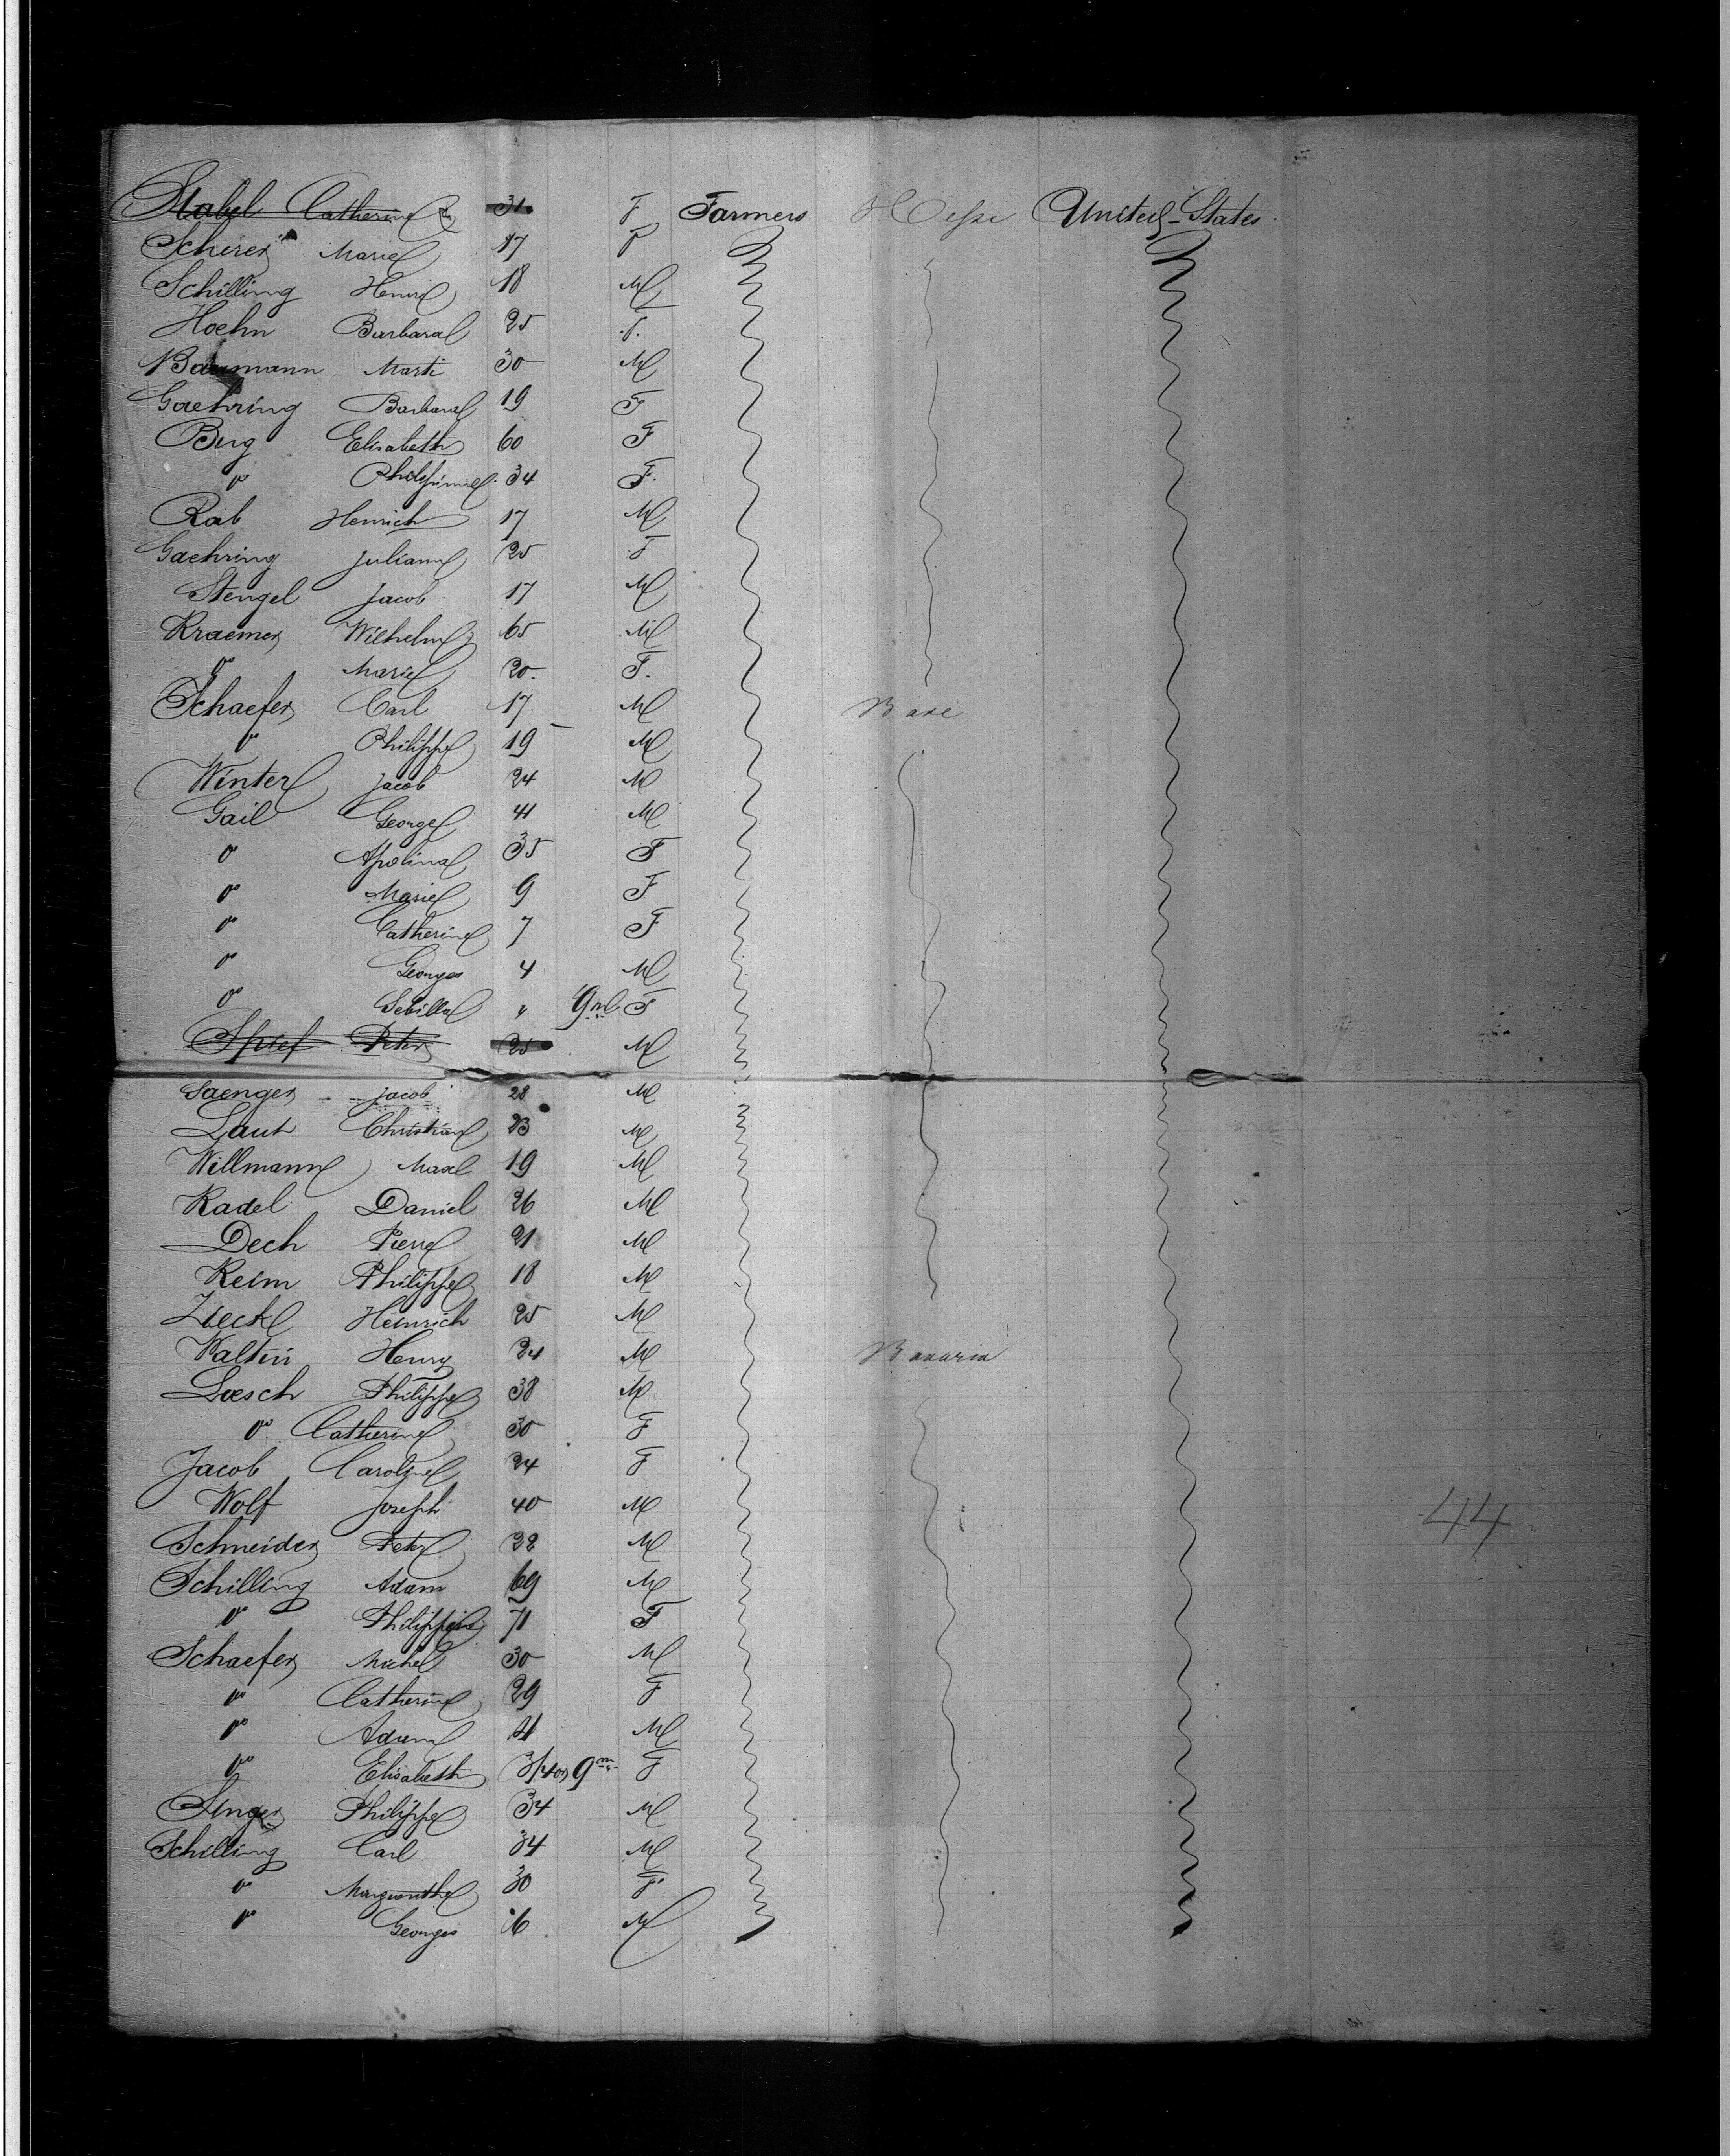 Stabel Catherine 31 F Farmers Hesse United-States.
Scherer Marie 17 F
Schilling Henri 18 M
Hoehn Barbara 25 F.
Baumann Marti 30 M
Gaehring Barbara 19 F
Berg Elisabeth 60 F
" Philippine 34 F.
Rab Henrich 17 M
Gaehring Juliane 25 F
Stengel Jacob 17 M
Kraemer Wilhelm 65 M
" Marie 20. F.
Schaefer Carl 17 M Bade
" Philippe 19 M
Winter Jacob 24 M
Gail George 41 M
" Apolina 35 F
" Marie 9 F
" Catherine 7 F
" Georges 4 M
" Sebilla " 9 m F
Peter 25 M
Saenger Jacob 28 M
Laut Christian 23 M
Willmann 19 M
Kadel Daniel 26 M
Dech Pierre 21 M
Keim Philippe 18 M
Zieckel Heinrich 25 M
Waltin Henry 24 M Bavaria
Loesch Philippe 38 M
" Catherine 30 F
Jacob Caroline 24 F
Wolf Joseph 40 M
44
Schneider Peter 22 M
Schilling Adam 69 M
" Philippine 71 F
Schaefer Michel 30 M
" Catherine 29 F
" Adam 4 M
" Elisabeth 3/4 or 9 m F
Singer Philippe 34 M
Schilling Carl 34 M
" Marguerithe 30 F
" Georges 6 M